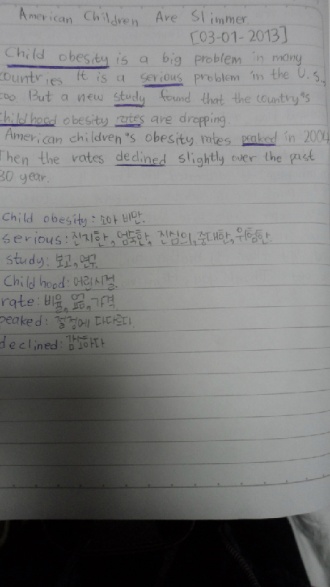 American Children Are Slimmer
[03-01-2013]
Child obesity is a big problem in many
countries. It is a serious problem in the U.S,
too. But a new study found that the country's
childhood obesity rates are dropping.
American children's obesity rates peaked in 2004
Then the rates declined slightly over the past
30 year.
Child obesity: 소아 비만.
serious: 진지한, 엄숙한, 진심의, 중대한, 위중한
study: 보고, 연구
Childhood: 어린시절
rate: 비율, 요금, 가격
peaked: 절정에 다다르다
declined: 감소하다